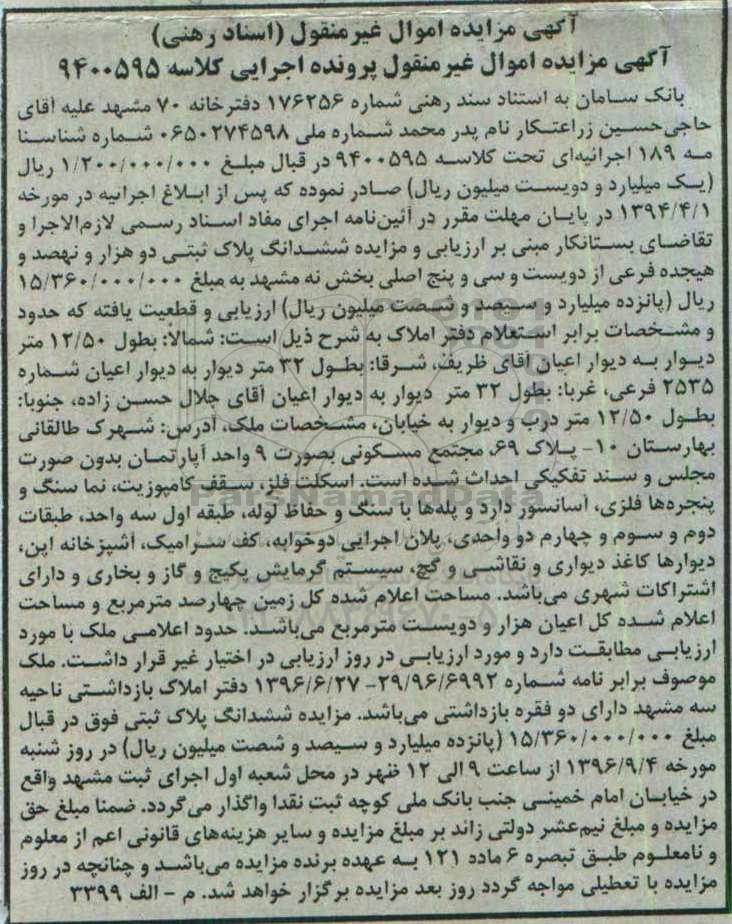 آگهی مزایده اموال غیرمنقول (اسناد رهنی)
آگهی مزایده اموال غیرمنقول پرونده اجرایی کلاسه ۹۴۰۰۵۹۵
بانک سامان به استناد سند رهنی شماره ۱۷۶۲۵۶ دفترخانه ۷۰ مشهد علیه آقای
حاجی‌حسین زراعتکار نام پدر محمد شماره ملی ۰۶۵۰۲۷۴۵۹۸ شماره شناسنا
مه ۱۸۹ اجرائیه‌ای تحت کلاسه ۹۴۰۰۵۹۵ در قبال مبلغ ۱/۲۰۰/۰۰۰/۰۰۰ ریال
(یک میلیارد و دویست میلیون ریال) صادر نموده که پس از ابلاغ اجرائیه در مورخه
۱۳۹۴/۴/۱ در پایان مهلت مقرر در آئین‌نامه اجرای مفاد اسناد رسمی لازم‌الاجرا و
تقاضای بستانکار مبنی بر ارزیابی و مزایده ششدانگ پلاک ثبتی دو هزار و نهصد و
هیجده فرعی از دویست و سی و پنج اصلی بخش نه مشهد به مبلغ ۱۵/۳۶۰/۰۰۰/۰۰۰
ریال (پانزده میلیارد و سیصد و شصت میلیون ریال) ارزیابی و قطعیت یافته که حدود
و مشخصات برابر استعلام دفتر املاک به شرح ذیل است: شمالاً: بطول ۱۲/۵۰ متر
دیوار به دیوار اعیان آقای ظریف، شرقا: بطول ۳۲ متر دیوار به دیوار اعیان شماره
۲۵۳۵ فرعی، غربا: بطول ۳۲ متر دیوار به دیوار اعیان آقای جلال حسن زاده، جنوبا:
بطول ۱۲/۵۰ متر درب و دیوار به خیابان، مشخصات ملک، آدرس: شهرک طالقانی
بهارستان ۱۰- پلاک ۶۹، مجتمع مسکونی بصورت ۹ واحد آپارتمان بدون صورت
مجلس و سند تفکیکی احداث شده است. اسکلت فلز، سقف کامپوزیت، نما سنگ و
پنجره‌ها فلزی، آسانسور دارد و پله‌ها با سنگ و حفاظ لوله، طبقه اول سه واحد، طبقات
دوم و سوم و چهارم دو واحدی، پلان اجرایی دوخوابه، کف سرامیک، آشپزخانه اپن،
دیوارها کاغذ دیواری و نقاشی و گچ، سیستم گرمایش پکیج و گاز و بخاری و دارای
اشتراکات شهری می‌باشد. مساحت اعلام شده کل زمین چهارصد مترمربع و مساحت
اعلام شده کل اعیان هزار و دویست مترمربع می‌باشد. حدود اعلامی ملک با مورد
ارزیابی مطابقت دارد و مورد ارزیابی در روز ارزیابی در اختیار غیر قرار داشت. ملک
موصوف برابر نامه شماره ۲۹/۹۶/۶۹۹۲- ۱۳۹۶/۶/۲۷ دفتر املاک بازداشتی ناحیه
سه مشهد دارای دو فقره بازداشتی می‌باشد. مزایده ششدانگ پلاک ثبتی فوق در قبال
مبلغ ۱۵/۳۶۰/۰۰۰/۰۰۰ (پانزده میلیارد و سیصد و شصت میلیون ریال) در روز شنبه
مورخه ۱۳۹۶/۹/۴ از ساعت ۹ الی ۱۲ ظهر در محل شعبه اول اجرای ثبت مشهد واقع
در خیابان امام خمینی جنب بانک ملی کوچه ثبت نقدا واگذار می‌گردد. ضمنا مبلغ حق
مزایده و مبلغ نیم‌عشر دولتی زائد بر مبلغ مزایده و سایر هزینه‌های قانونی اعم از معلوم
و نامعلوم طبق تبصره ۶ ماده ۱۲۱ به عهده برنده مزایده می‌باشد و چنانچه در روز
مزایده با تعطیلی مواجه گردد روز بعد مزایده برگزار خواهد شد. م - الف ۳۳۹۹
ParsNamadData